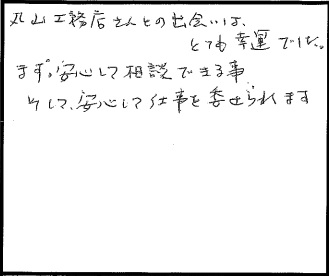 丸山工務店さんとの出会いは、
とても幸運でした。
まず。安心して相談できる事
そして、安心して仕事を委せられます